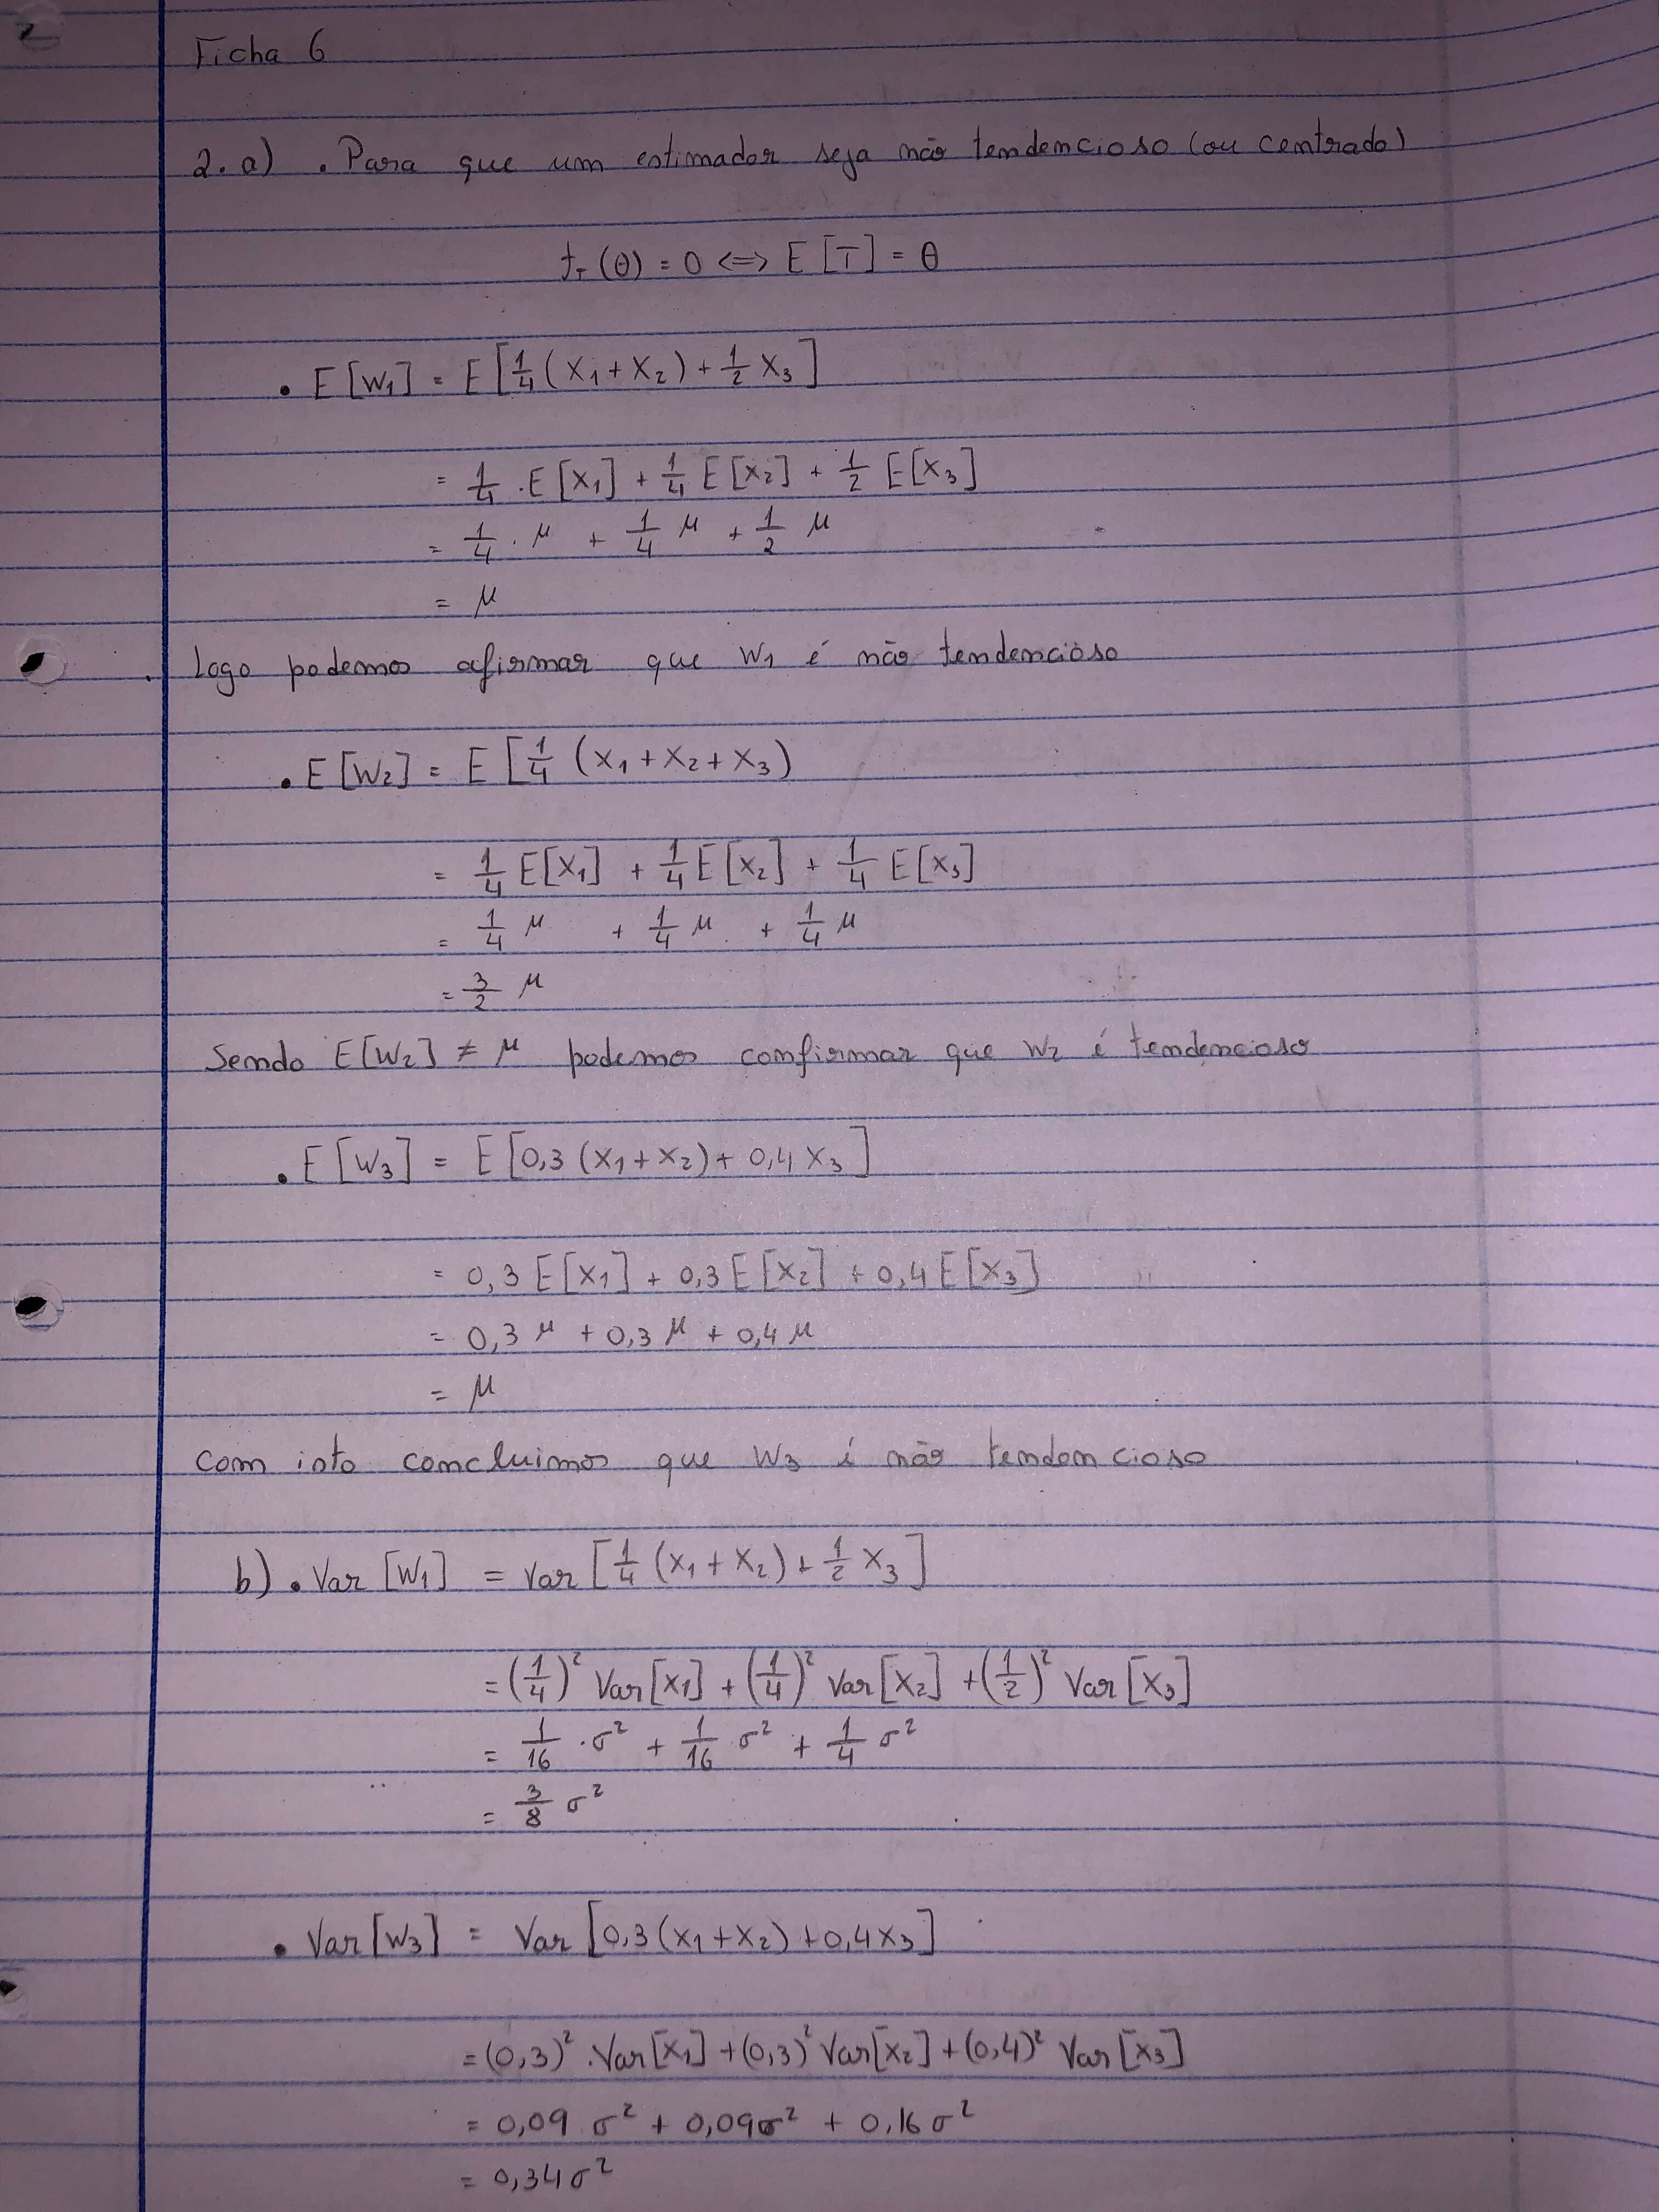 Ficha 6
2. a) . Para que um estimador seja não tendencioso (ou centrado)
t_T(θ) = 0 <=> E[T] = θ
• E[W₁] = E[1/4 (X₁ + X₂) + 1/2 X₃]
= 1/4 . E[X₁] + 1/4 E[X₂] + 1/2 E[X₃]
= 1/4 . μ + 1/4 μ + 1/2 μ
= μ
. Logo podemos afirmar que W₁ é não tendencioso
• E[W₂] = E[1/4 (X₁ + X₂ + X₃)
= 1/4 E[X₁] + 1/4 E[X₂] + 1/4 E[X₃]
= 1/4 μ + 1/4 μ + 1/4 μ
= 3/2 μ
Sendo E[W₂] ≠ μ podemos confirmar que W₂ é tendencioso
• E[W₃] = E[0,3 (X₁ + X₂) + 0,4 X₃]
= 0,3 E[X₁] + 0,3 E[X₂] + 0,4 E[X₃]
= 0,3 μ + 0,3 μ + 0,4 μ
= μ
Com isto concluimos que W₃ é não tendencioso
b) • Var[W₁] = Var[1/4 (X₁ + X₂) + 1/2 X₃]
= (1/4)² Var[X₁] + (1/4)² Var[X₂] + (1/2)² Var[X₃]
= 1/16 . σ² + 1/16 σ² + 1/4 σ²
= 3/8 σ²
• Var[W₃] = Var[0,3 (X₁ + X₂) + 0,4 X₃]
= (0,3)² . Var[X₁] + (0,3)² Var[X₂] + (0,4)² Var[X₃]
= 0,09 σ² + 0,09 σ² + 0,16 σ²
= 0,34 σ²